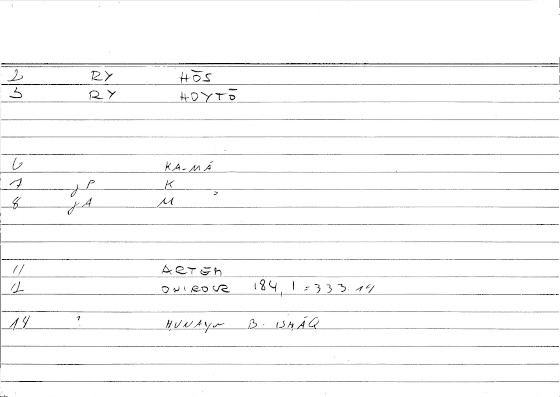 2 RY HŌS
3 RY HOYTŌ
6 KA-MĀ
7 γP K
8 γA M
11 ARTEM
12 ONIROCR 184, 1 = 333.14
14 ? HUNAYN B. ISHĀQ